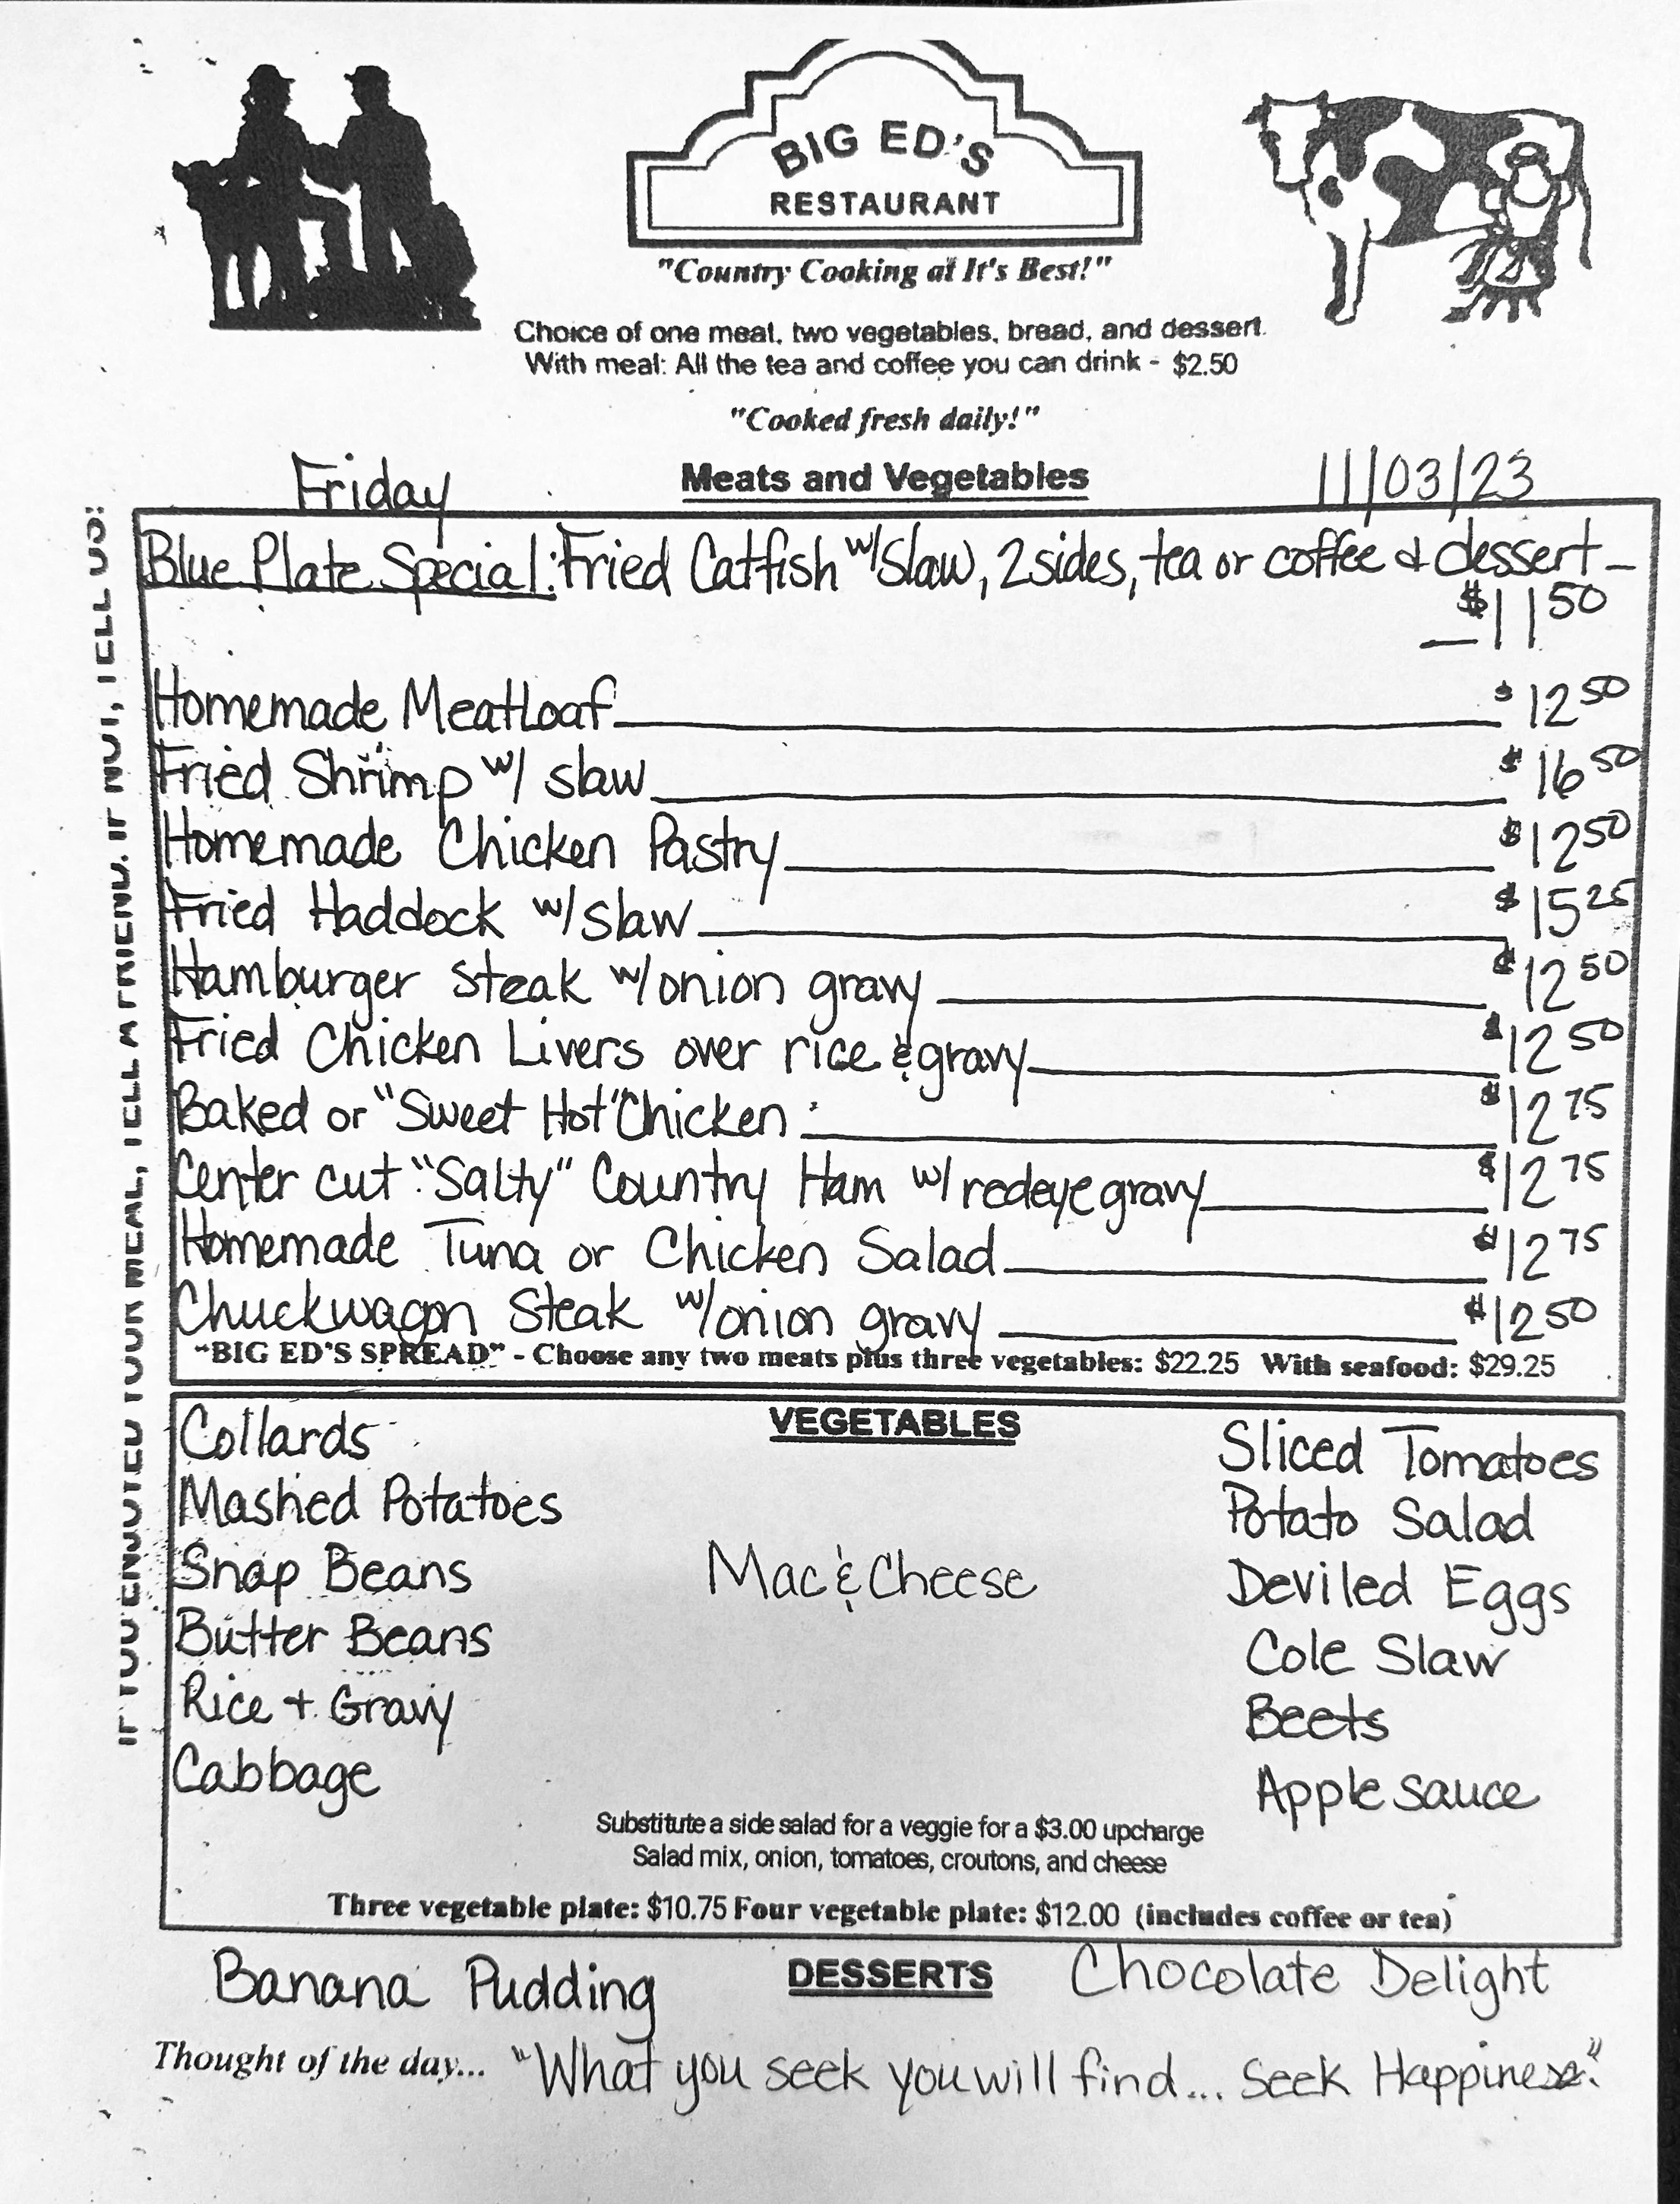 BIG ED'S
RESTAURANT
"Country Cooking at It's Best!"
Choice of one meat, two vegetables, bread, and dessert.
With meal: All the tea and coffee you can drink - $2.50
"Cooked fresh daily!"
Friday
Meats and Vegetables
11/03/23
IF YOU ENJOYED YOUR MEAL, TELL A FRIEND. IF NOT, TELL US!
Blue Plate Special: Fried Catfish w/ Slaw, 2 sides, tea or coffee & dessert –
– $11 50
Homemade Meatloaf $12 50
Fried Shrimp w/ slaw $16 50
Homemade Chicken Pastry $12 50
Fried Haddock w/ slaw $15 25
Hamburger Steak w/ onion gravy $12 50
Fried Chicken Livers over rice & gravy $12 50
Baked or "Sweet Hot" Chicken $12 75
Center cut "Salty" Country Ham w/ redeye gravy $12 75
Homemade Tuna or Chicken Salad $12 75
Chuckwagon Steak w/ onion gravy $12 50
"BIG ED'S SPREAD" - Choose any two meats plus three vegetables: $22.25 With seafood: $29.25
VEGETABLES
Collards
Mashed Potatoes
Snap Beans
Butter Beans
Rice + Gravy
Cabbage
Mac & Cheese
Sliced Tomatoes
Potato Salad
Deviled Eggs
Cole Slaw
Beets
Apple Sauce
Substitute a side salad for a veggie for a $3.00 upcharge
Salad mix, onion, tomatoes, croutons, and cheese
Three vegetable plate: $10.75 Four vegetable plate: $12.00 (includes coffee or tea)
DESSERTS
Banana Pudding
Chocolate Delight
Thought of the day... "What you seek you will find... Seek Happiness."